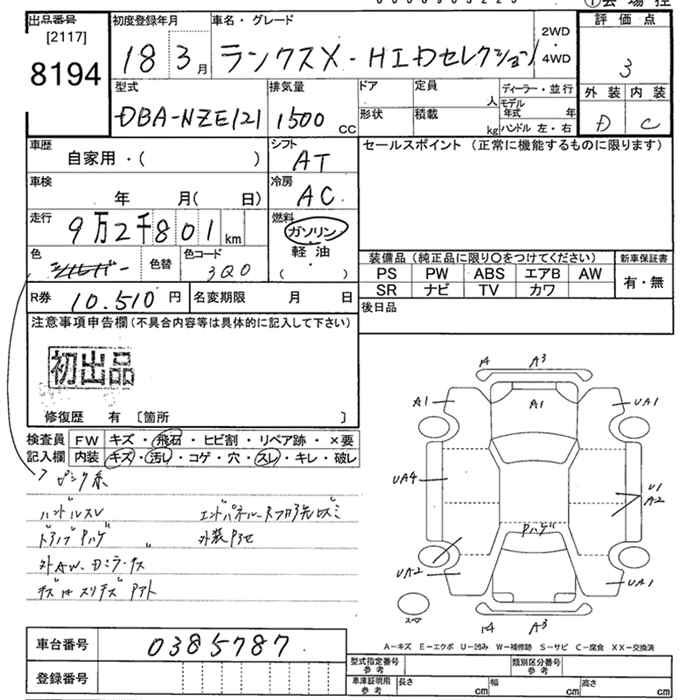 出品番号
[2117]
8194
初度登録年月
18 3月
車名・グレード
ランクスX - HIDセレクション
2WD
4WD
評価点
3
外装 内装
D C
型式
DBA-NZE121
排気量
1500 CC
ドア
形状
定員
人
積載
kg
ディーラー・並行
モデル
年式 年
ハンドル 左・右
車歴
自家用・( )
シフト
AT
セールスポイント (正常に機能するものに限ります)
車検
年 月( 日)
冷房
AC
走行
9万2千801 km
燃料
ガソリン
軽油
( )
色
シルバー
色替
色コード
3Q0
装備品 (純正品に限り○をつけてください)
新車保証書
PS PW ABS エアB AW
SR ナビ TV カワ
有・無
R券
10.510 円
名変期限 月 日
後日品
注意事項申告欄 (不具合内容等は具体的に記入して下さい)
初出品
修復歴 有 [箇所 ]
検査員
記入欄
FW キズ・飛石・ヒビ割・リペア跡・×要
内装 キズ・汚レ・コゲ・穴・スレ・キレ・破レ
ハンドルスレ
外装ヤセ
A A3
A1 A1 UA1
UA4 U1
A2
Pハゲ
UA2 UA1
スペア
A3
A-キズ E-エクボ U-凹み W-補修跡 S-サビ C-腐食 XX-交換済
車台番号
0385787
登録番号
型式指定番号
参考
類別区分番号
参考
車庫証明用
参考
長さ cm 幅 cm 高さ cm